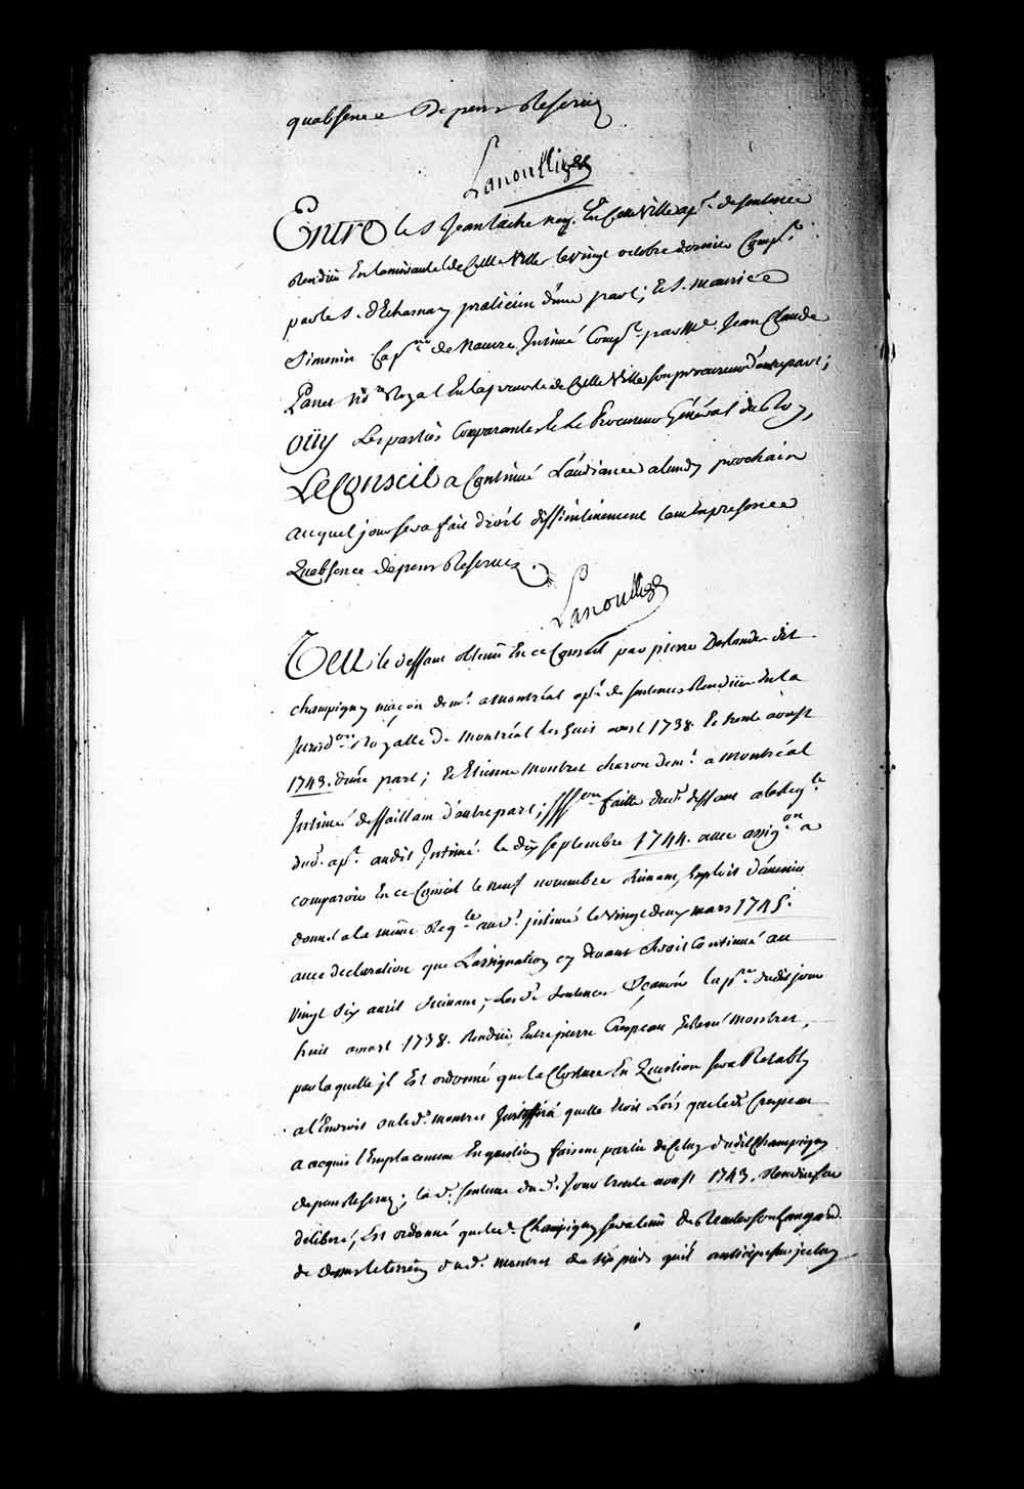 quabsence Depens Reservez
Lanoullier
Entre le S Jean Taché neg.t En Cette Ville ap.t de sentence
Rendüe En la ... de Cette Ville le vingt octobre dernier Comp.t
par le S. ... praticien d'une part; Et S. Maurice
Simonin Cap.ne de Navire Intimé Comp.t par M.e Jean Claude
Panet No.re Royal En la prevosté de Cette Ville son procureur d'autre part;
oüy Les parties Comparantes et Le Procureur Général du Roy,
Le Conseil a Continué L'audiance a lundy prochain
auquel jour sera fait droit diffinitivement tant En presence
Qu'absence depens Reservez.
Lanoullier
Veu le deffaut obtenu En ce Conseil par pierre ... dit
champigny maçon dem.t a Montréal ap.t de sentences Rendües En la
Jurisd.on Royalle de Montréal les huit aoust 1738. Et trente aoust
1743. d'une part; Et Etienne Montret charon dem.t a Montréal
Intimé deffaillant d'autre part; ...on faitte dud.t deffaut a la Req.te
dud. ap.t audit Intimé le dix septembre 1744. avec assig.on a
comparoir En ce Conseil le neuf novembre suivant, Exploit d'avenir
donné a la même Req.te aud.t intimé le vingt deux mars 1745.
avec declaration que L'assignation cy devant Etoit Continué au
vingt six avril suivant; Les d.es sentences ... la p.re dudit jour
huit aoust 1738. Rendüe Entre pierre Crepeau Et led.t Montret,
par laquelle jl Est ordonné que la Closture En Question sera Retably
a l'Endroit ou le d. Montret Justiffira quelle Etoit Lors que le d. Crepeau
a acquis l'Emplacement En question faisant partie de Celuy dudit Champigny
depens Reservez; la d.e sentence du d. Jour trente aoust 1743. Rendüe sur
délibéré, Est ordonné que le d. Champigny sera tenu de Reculer son hangard
de dessus le terrein dud. Montret de six pieds qu'il anticipe sur jceluy